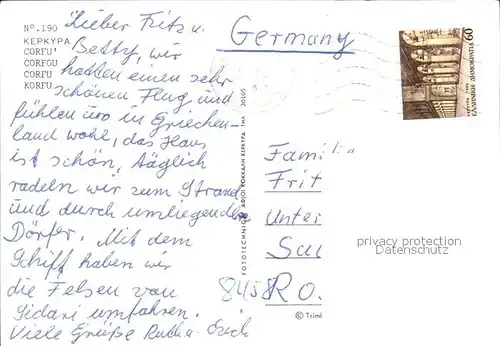 Nº.190
ΚΕΡΚΥΡΑ
CORFU'
CORFOU
CORFU
KORFU
Lieber Fritz u.
Betty, wir
hatten einen sehr
schönen Flug und
fühlen uns in Griechen-
land wohl, das Haus
ist schön, täglich
radeln wir zum Strand
und durch umliegende
Dörfer. Mit dem
Schiff haben wir
die Felsen von
Sidari umfahren.
Viele Grüße
Germany
60
ΕΛΛΗΝΙΚΗ ΔΗΜΟΚΡΑΤΙΑ
ΑΦΟΙ ΚΟΚΚΑΛΗ ΚΕΡΚΥΡΑ ΤΗΛ. 30105
Famili
Frit
Unter
Sul
8458 RO.
privacy protection
Datenschutz